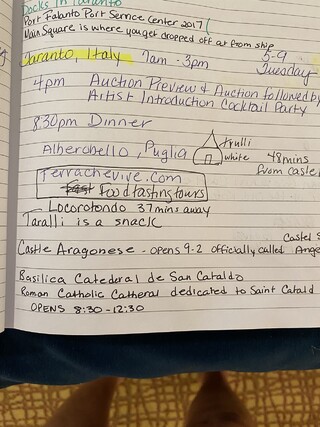 Docks in Taranto
Port Falanto Port Service Center 2017
Main Square is where you get dropped off at from ship
Taranto, Italy 7am - 3pm 5-9
Tuesday
4pm Auction Preview & Auction followed by
Artist Introduction Cocktail Party
830pm Dinner
trulli
Alberobello, Puglia white 48mins
from castle
Terrachevive.com
Food tasting tours
Locorotondo 37mins away
Taralli is a snack
Castel S
Castle Aragonese - opens 9-2 officially called Ange
Basilica Catederal de San Cataldo
Roman Catholic Catheral dedicated to Saint Catald
OPENS 8:30-12:30